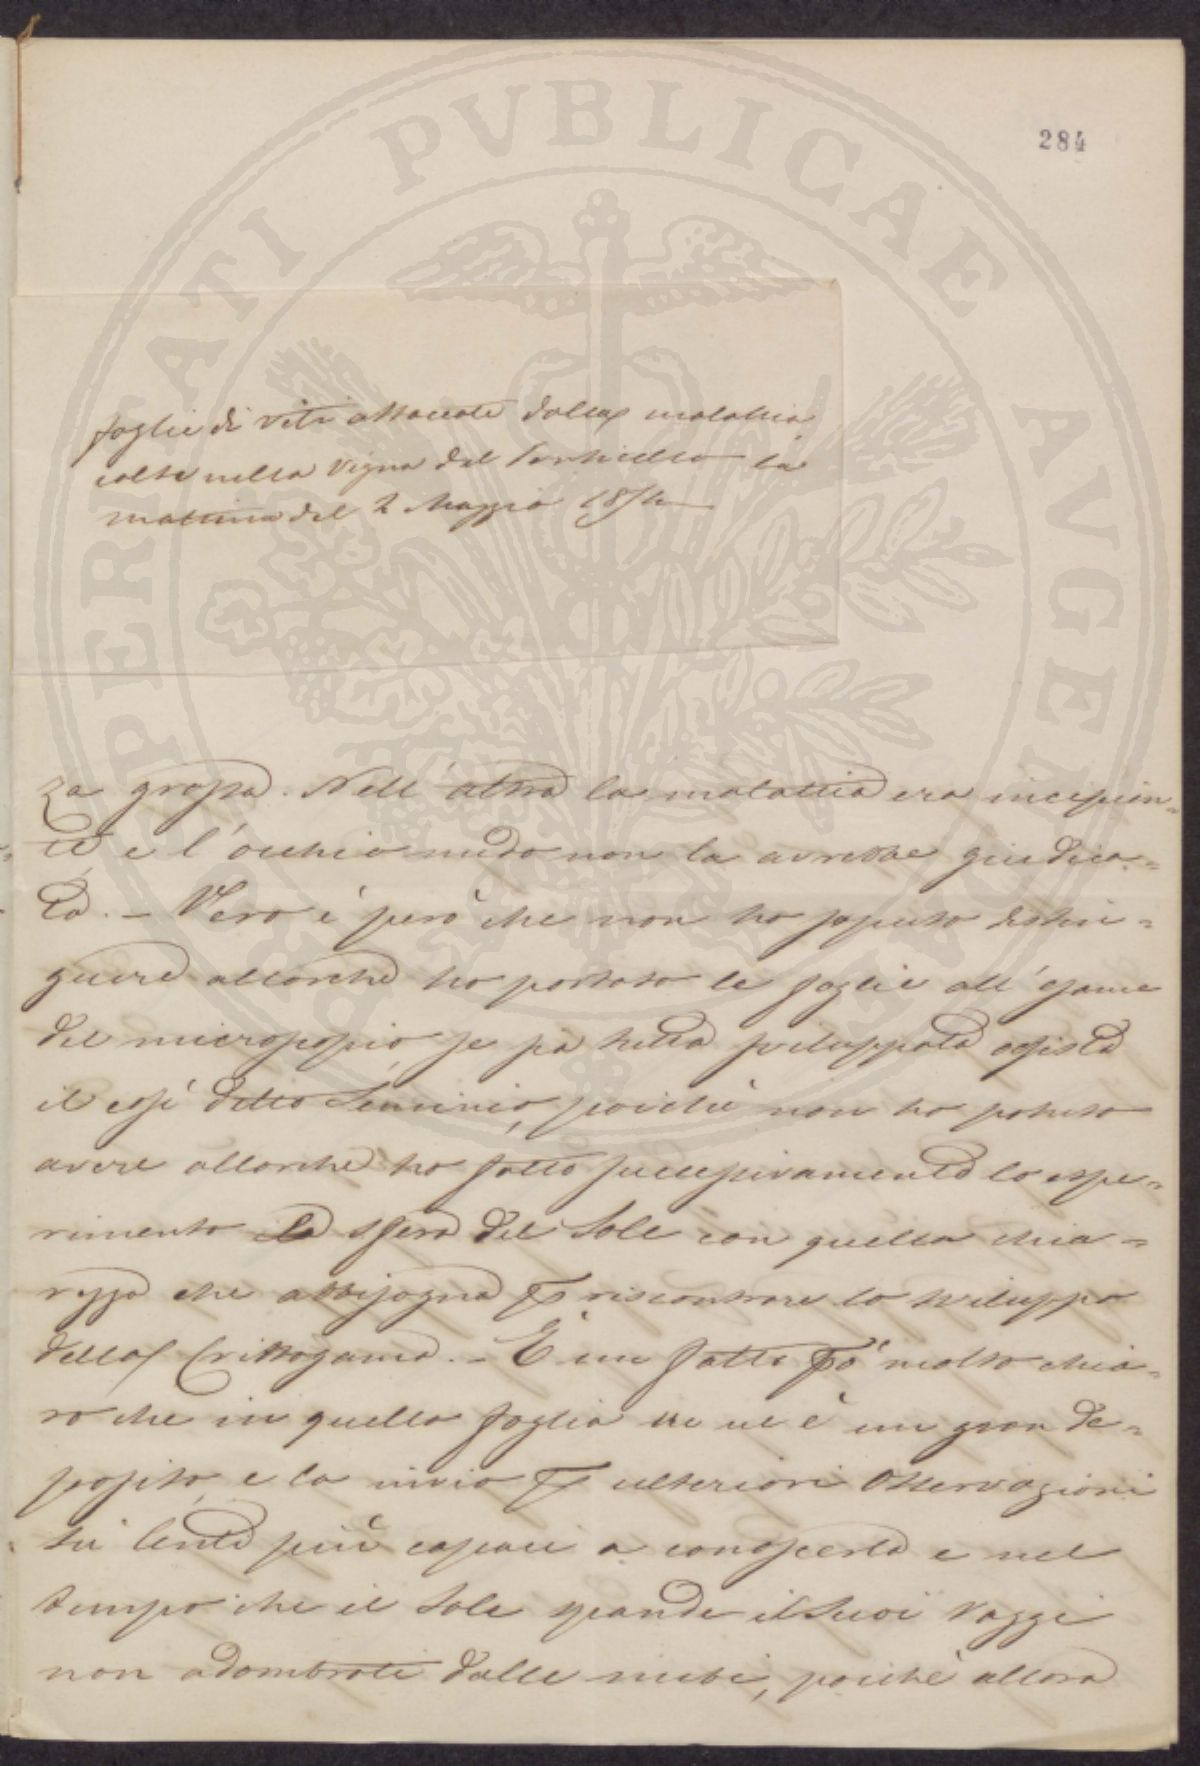 PROSPERITATI PVBLICAE AVGENDAE
284
foglie di viti attaccate dalla malattia
colte nella Vigna del Conticello la
mattina del 2 Maggio 1854
za grossa. Nell'altra la malattia era incipien=
te e l'occhio nudo non la avrebbe giudica=
ta. – Vero è però che non ho saputo distin=
guere allorché ho portato le foglie all'esame
del microscopio se sia tutta sviluppata ossista
il così detto Seminio, poiché non ho potuto
avere allorché ho fatto successivamente lo espe=
rimento la sfera del Sole con quella chia=
rezza che abbisogna p riscontrare lo sviluppo
della Crittogama. – È un fatto però molto chia=
ro che in quella foglia ve ne è un gran de=
posito, e la invio p ulteriori Osservazioni
su lente più capaci a conoscerla e nel
tempo che il Sole spande i Suoi raggi
non adombrati dalle nubi, poiché allora